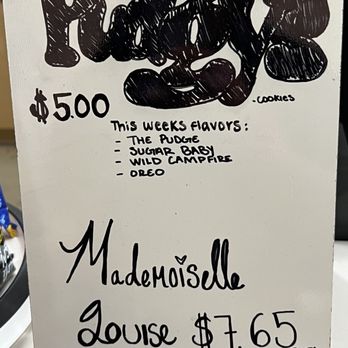 Pudgy
- COOKIES
$5.00
This weeks flavors:
- THE PUDGE
- SUGAR BABY
- WILD CAMPFIRE
- OREO
Mademoiselle
Louise $7.65